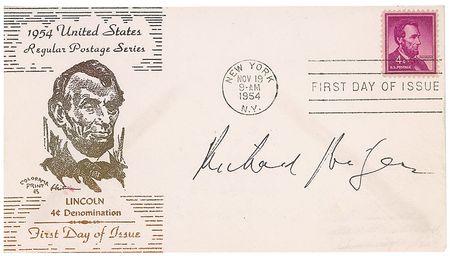 1954 United States
Regular Postage Series
LINCOLN
4¢ Denomination
First Day of Issue
NEW YORK
NOV 19
9-AM
1954
N.Y.
FIRST DAY OF ISSUE
4¢
U.S. POSTAGE
Richard